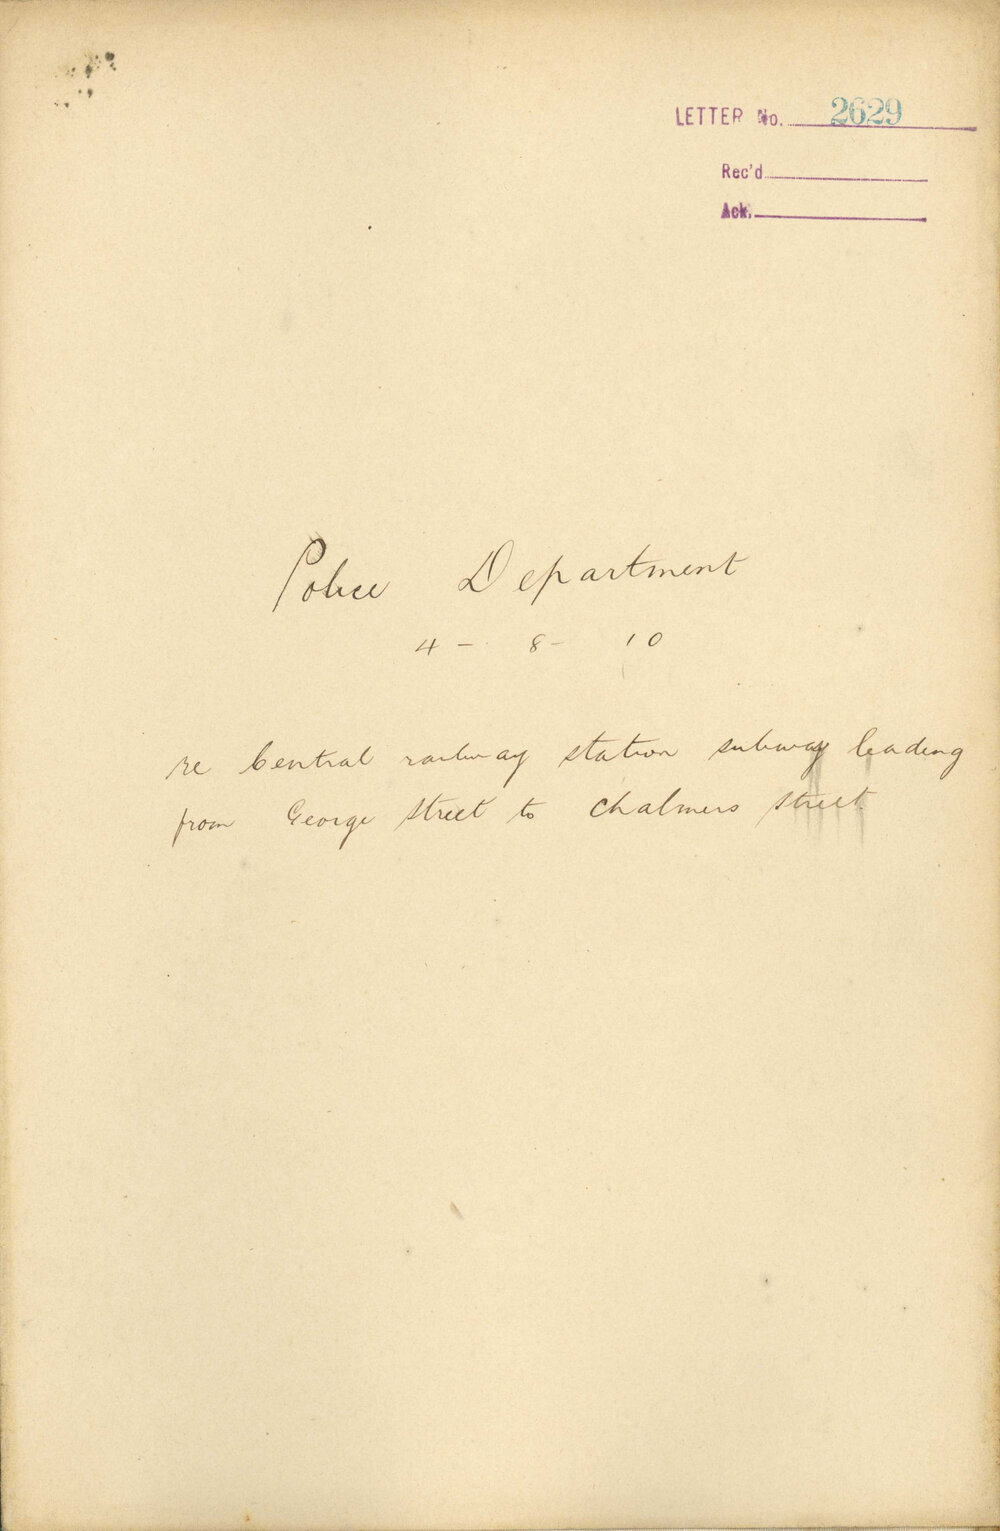 LETTER No. 2629
Rec'd
Ack.
Police Department
4 - 8 - 10
re Central railway station subway leading
from George street to Chalmers street